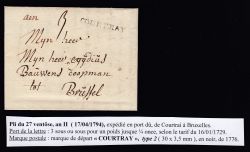 aen
COURTRAY
Mijn heer
Mijn heer Egidius
Bauwens Coopman
tot
Brüssel
Pli du 27 ventôse, an II ( 17/04/1794), expédié en port dû, de Courtrai à Bruxelles.
Port de la lettre : 3 sous ou sous pour un poids jusque ¼ once, selon le tarif du 16/01/1729.
Marque postale : marque de départ « COURTRAY », type 2 ( 30 x 3,5 mm ), en noir, de 1776.